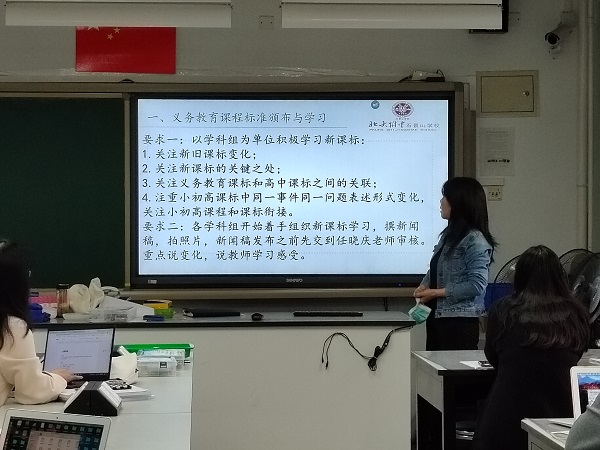 一、义务教育课程标准颁布与学习
北大附中石景山学校
要求一：以学科组为单位积极学习新课标：
1. 关注新旧课标变化；
2. 关注新课标的关键之处；
3. 关注义务教育课标和高中课标之间的关联；
4. 注重小初高课标中同一事件同一问题表述形式变化，
关注小初高课程和课标衔接。
要求二：各学科组开始着手组织新课标学习，撰新闻
稿，拍照片，新闻稿发布之前先交到任晓庆老师审核。
重点说变化，说教师学习感受。